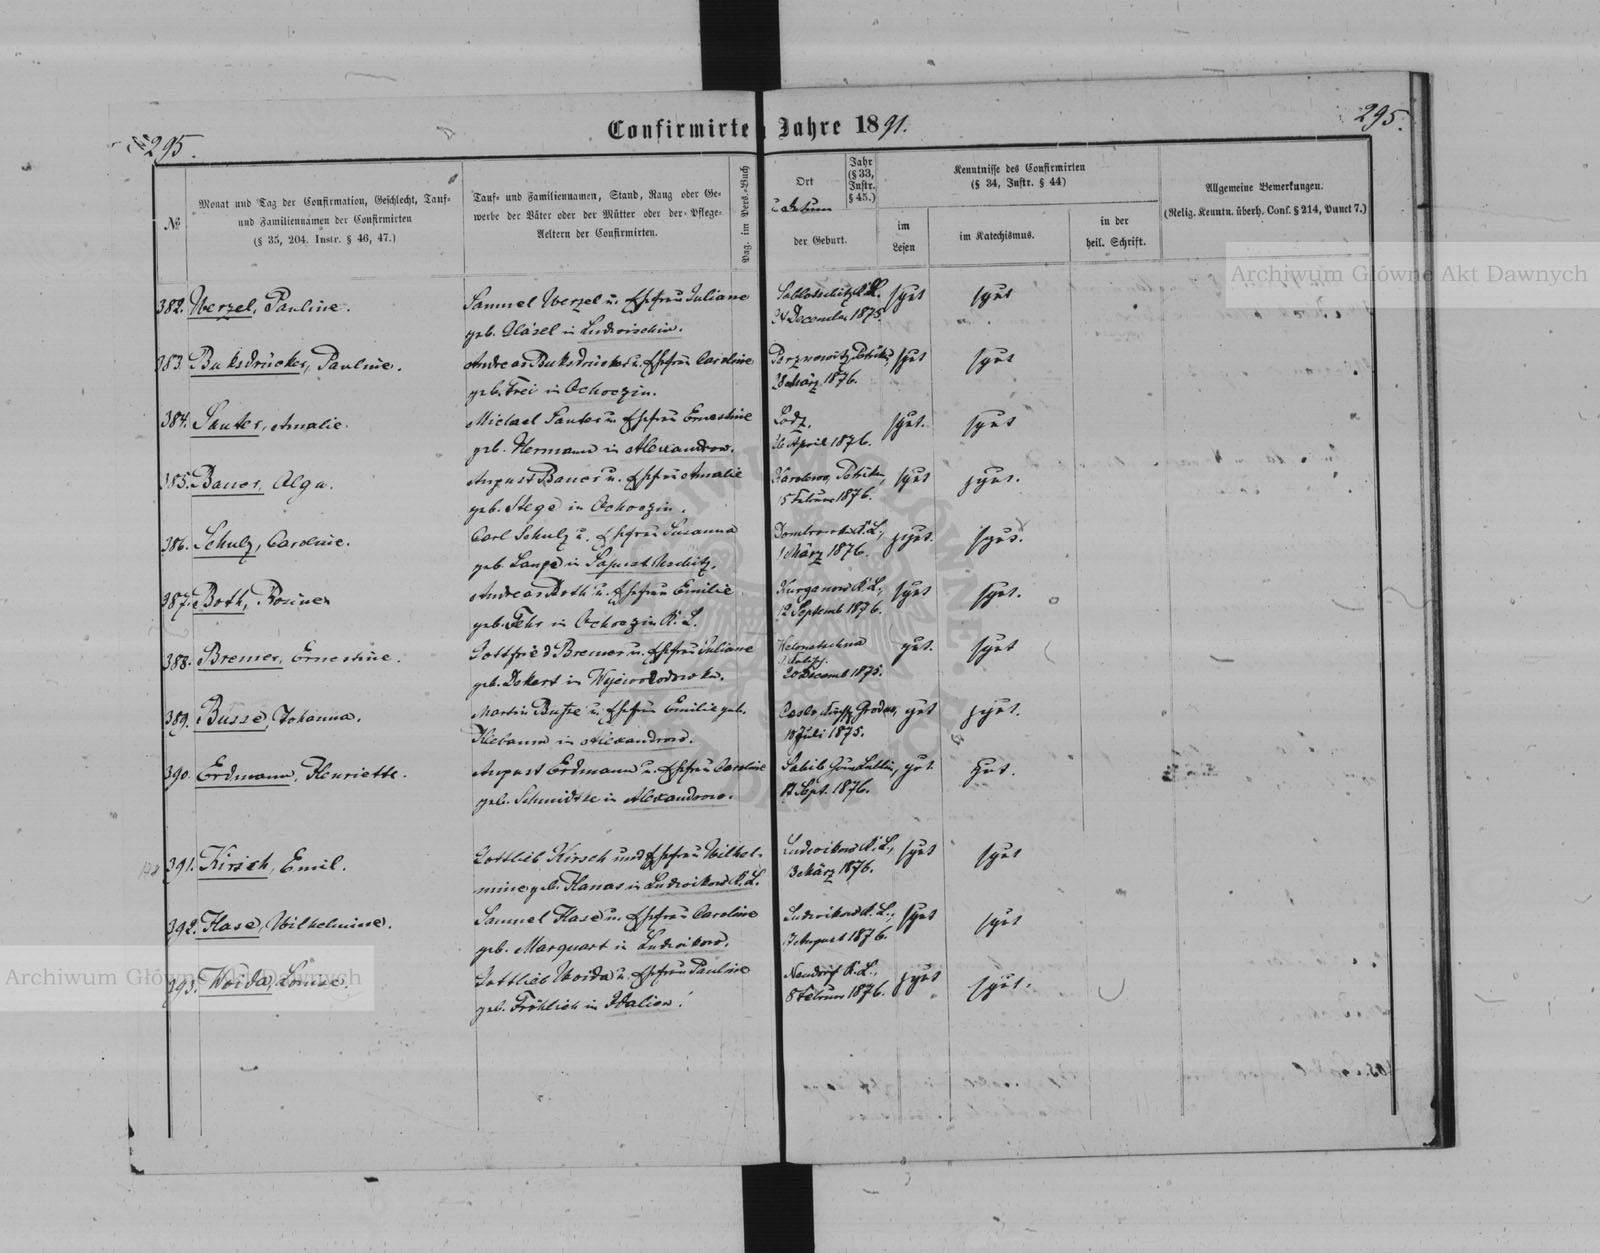 295.
Confirmirte n Jahre 1891.
295.
№
Monat und Tag der Confirmation, Geschlecht, Tauf-
und Familiennamen der Confirmirten
(§ 35, 204. Instr. § 46, 47.)
Tauf- und Familiennamen, Stand, Rang oder Ge-
werbe der Väter oder der Mütter oder der Pflege-
Aeltern der Confirmirten.
Pag. im Pers.-Buch
Ort
u Datum
der Geburt.
Jahr
(§ 33,
Instr.
§ 45.)
Kenntnisse des Confirmirten
(§ 34, Instr. § 44)
im
Lesen
im Katechismus.
in der
heil. Schrift.
Allgemeine Bemerkungen.
(Relig. Kenntn. überh. Conf. § 214, Punct 7.)
382. Werzel, Pauline.
Samuel Werzel u. Ehefrau Juliane
geb. Gläsel in Ludwischin.
December 1875.
gut
gut
383. Buksdrücker, Pauline.
Andreas Buksdrücker u. Ehefrau Caroline
geb. Frei in Ochoczin.
28 März 1876.
gut
gut
384. Sauter, Amalie.
Michael Sauter u. Ehefrau Ernestine
geb. Hermann in Alexandrow.
Lodz,
April 1876.
gut.
gut
385. Bauer, Olga.
August Bauer u. Ehefrau Amalie
geb. Stege in Ochoczin.
5 Februar 1876.
gut
gut.
386. Schulz, Caroline.
Carl Schulz u. Ehefrau Susanna
geb. Lange in
Dombrowka K. L.,
1 März 1876.
gut.
gut.
387. Both, Rosine
Andreas Both u. Ehefrau Emilie
geb. Fehr in Ochoczin K. L.
Kurganow K. L.,
12 Septemb 1876.
gut
gut.
388. Bremer, Ernestine.
Gottfried Bremer u. Ehefrau Juliane
geb. Dekert in
20 Decemb 1875.
gut.
gut
389. Busse, Johanna.
Martin Busse u. Ehefrau Emilie geb.
Klebaum in Alexandrow.
Grodno,
18 Juli 1875.
gut
gut.
390. Erdmann, Henriette.
August Erdmann u. Ehefrau Caroline
geb. Schmidtke in Alexandrow.
Sabib Gouv Lublin,
17 Sept. 1876.
gut.
gut.
391. Kirsch, Emil.
Gottlieb Kirsch und Ehefrau Wilhel-
mine geb. Hanas in Ludwikow K. L.
Ludwikow K. L.,
3 März 1876.
gut
gut
392. Hase, Wilhelmine.
Samuel Hase u. Ehefrau Caroline
geb. Marquart in Ludwikow.
Ludwikow K. L.,
17 August 1876.
gut
gut
393. Woida, Louise.
Gottlieb Woida u. Ehefrau Pauline
geb. Fröhlich in Idalien.
Neudorf K. L.,
8 Februar 1876.
gut
gut.
Archiwum Główne Akt Dawnych
Archiwum Główne Akt Dawnych